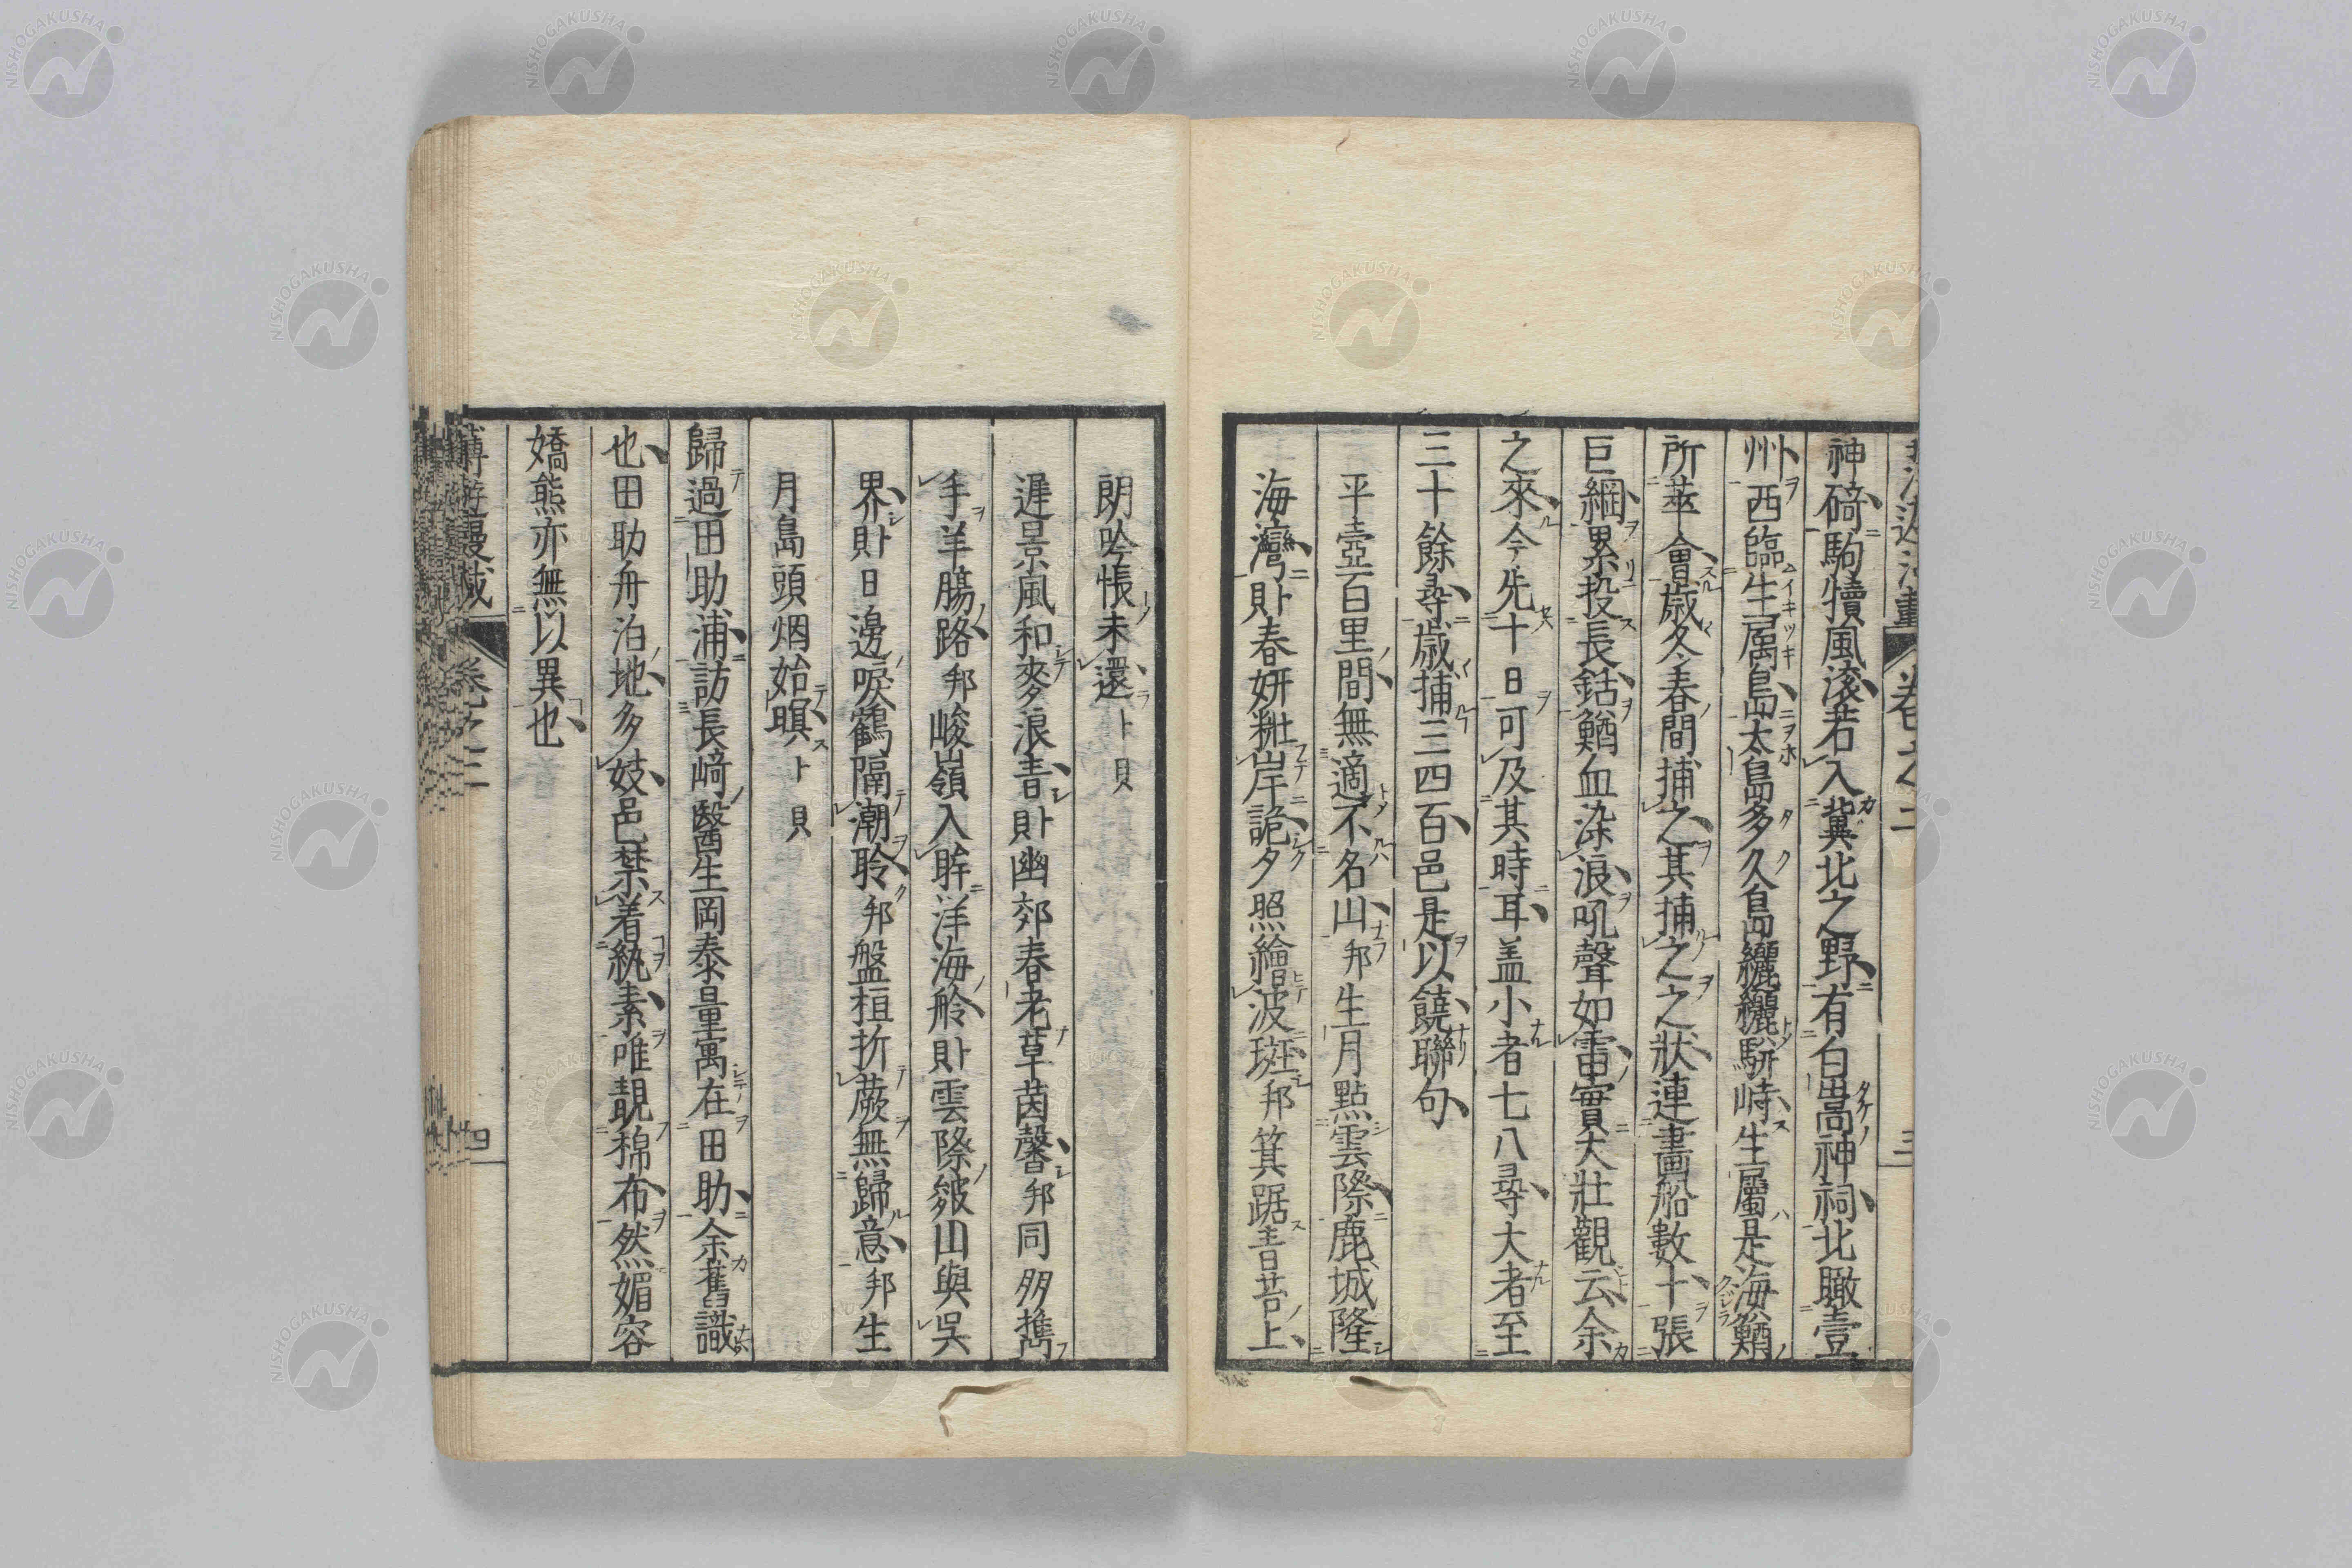 神碕駒犢風滚若入冀北之野有白嵩神祠北瞰壹
州西臨生属島太島多久島纚纚駢峙生屬是海鰌
所萃會歳冬春間捕之其捕之之狀連畫船數十張
巨綱累投長銛鰌血染浪吼聲如雷實大壯觀云余
之來今先十日可及其時耳盖小者七八尋大者至
三十餘尋歳捕三四百邑是以饒聯句
平壺百里間無適不名山邦生月點雲際鹿城隆
海灣卟春妍粧岸詭夕照繪波斑邦箕踞青苔上
朗吟悵未還卜貝
遲景風和麥浪青卟幽郊春老草茵馨邦同朋携
手羊膓路邦峻嶺入眸洋海舲卟雲際皴山與呉
界卟日邊唳鶴隔潮聆邦盤桓折蕨無歸意邦生
月島頭烟始暝卜貝
歸過田助浦訪長﨑醫生岡泰量寓在田助余舊識
也田助舟泊地多妓邑禁着紈素唯靚棉布然媚容
嬌熊亦無以異也
卷之三
四
NISHOGAKUSHA